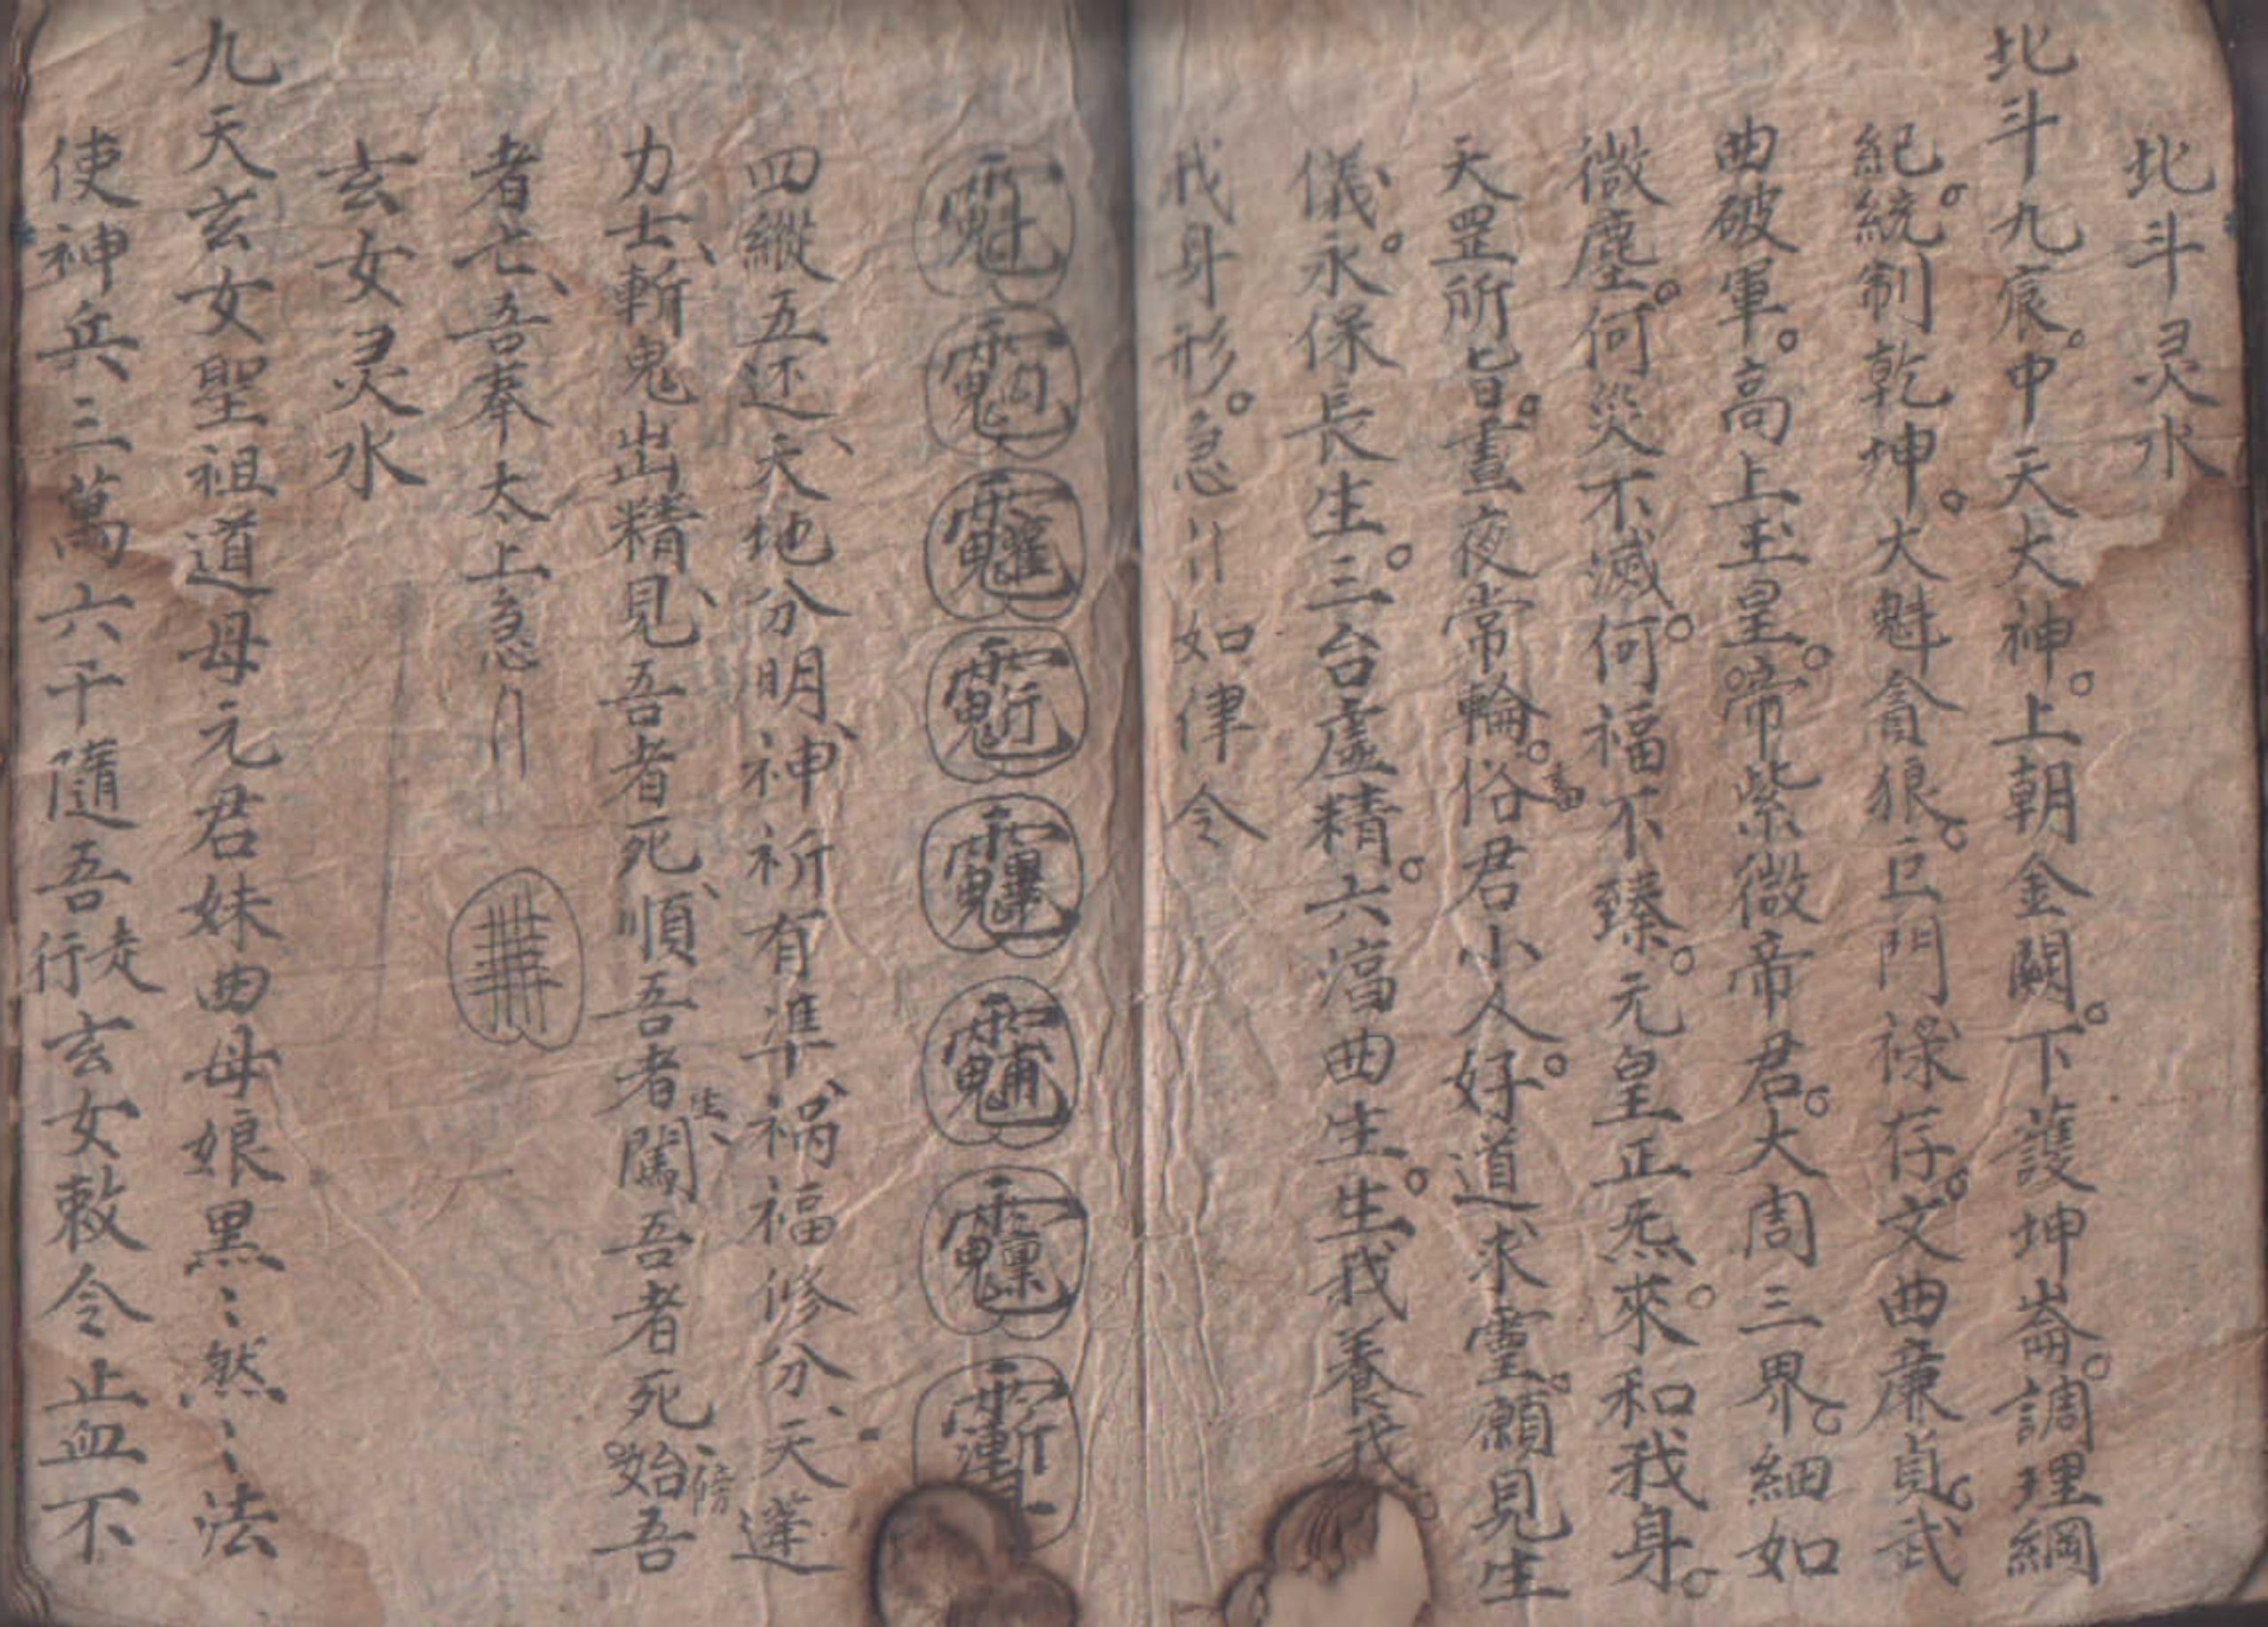 北斗灵水
北斗九宸。中天大神。上朝金闕。下護坤崙。調理綱
紀。統制乾坤。大魁貪狼。巨門祿存。文曲廉貞。武
曲破軍。高上玉皇。帝紫微帝君。大周三界。細如
微塵。何災不滅。何福不臻。元皇正炁。來和我身。
天罡所旨。晝夜常輪。俗君小人。好道求靈。願見生
儀。永保長生。三台虛精。六湻曲生。生我養我
我身形。急〃如律令
四縱五还、天地分明、神祈有準、禍福修分、天蓬
力士、斬鬼出精、見吾者死、順吾者生、闖吾者死、始傍吾
者亡、吾奉太上急〃
玄女灵水
九天玄女聖祖道母元君妹曲母娘黑〻然〻法
使神兵三萬六千隨吾行走玄女敕令止血不